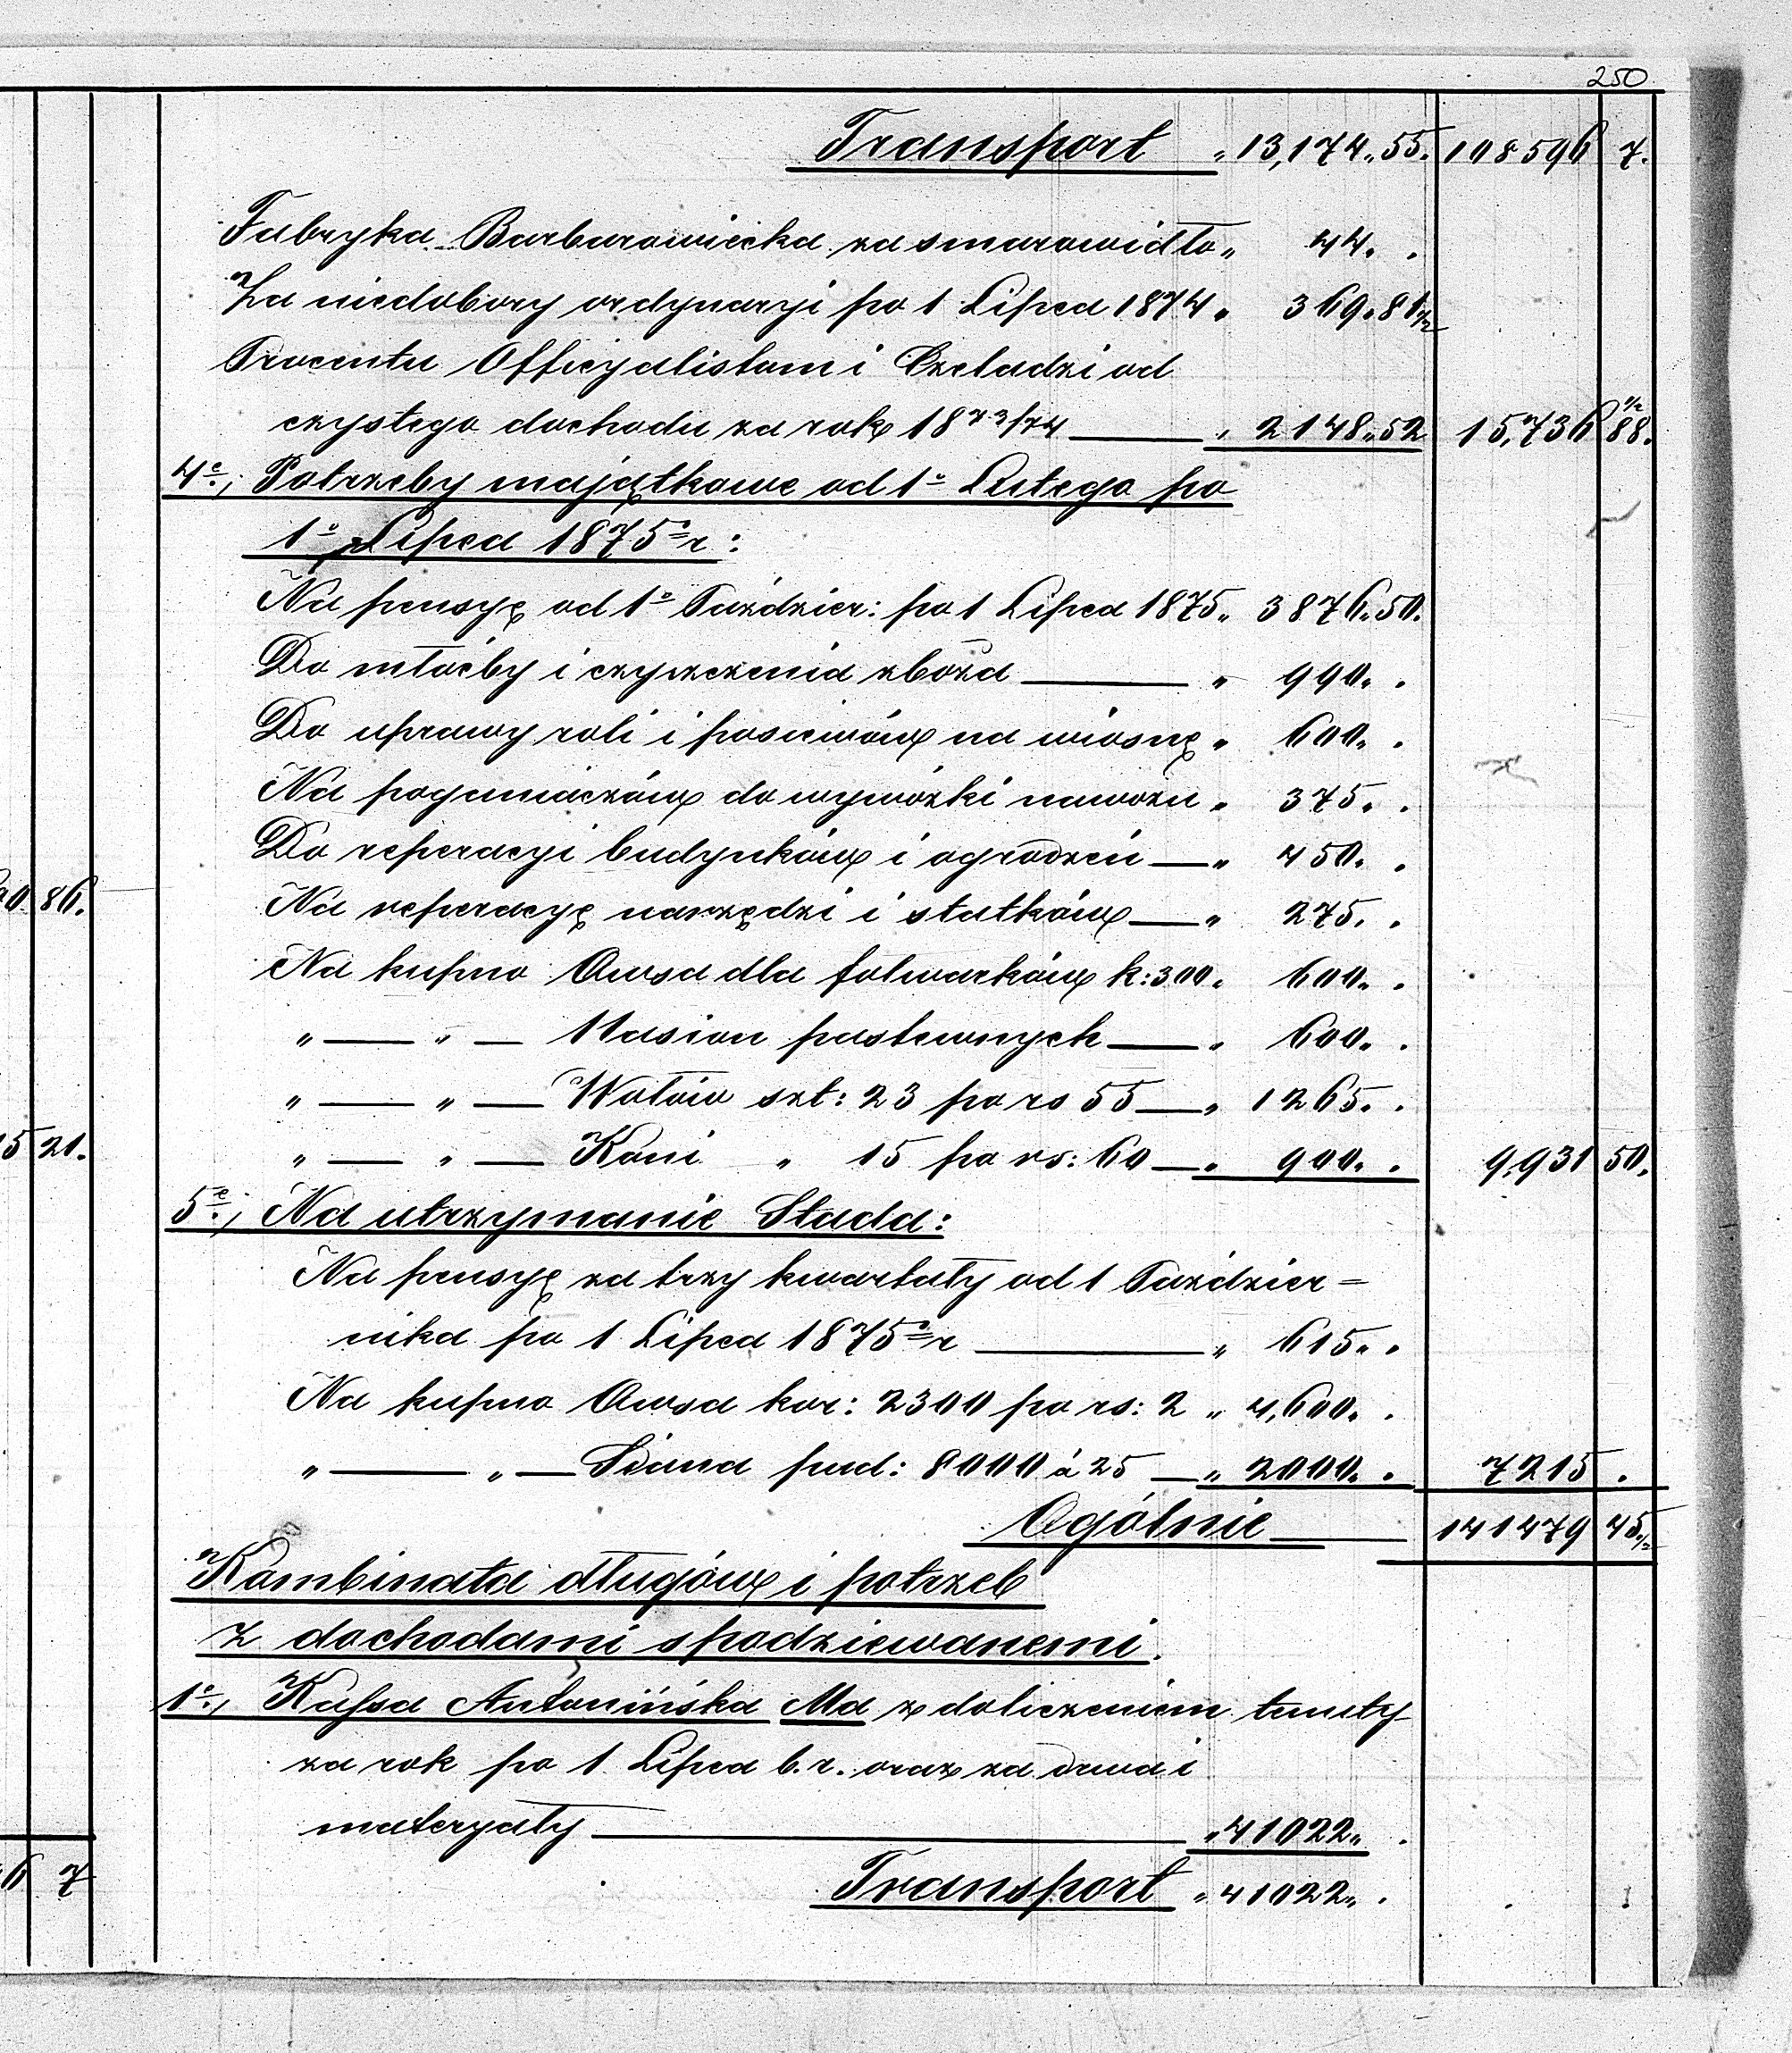 250
Transport „ 13,174„ 55. 108596 7.
Fabryka Barbarowiecka za smarowidło „ 44. .
Za niedobory ordynaryi po 1 Lipca 1874 „ 369„ 81 1/2
Procentu Officyalistom i Czeladzi od
czystego dochodu za rok 1873/74 — „ 2148„ 52 15,736 88 1/2.
4e., Potrzeby majątkowe od 1o Lutego po
1o Lipca 1875o r:
Na pensyę od 1o Paździer: po 1 Lipca 1875„ 3876„ 50.
Do młoćby i czyszczenia zboża — „ 990„ .
Do uprawy roli i posiewów na wiosnę „ 600„ .
Na poganiaczów do wywózki nawozu „ 375„ .
Do reperacyi budynków i ogrodzeń — „ 450„ .
Na reperacyę narzędzi i statków — „ 275„ .
Na kupno Owsa dla folwarków k: 300„ 600„ .
„ — „ — Nasion pastewnych — „ 600„ .
„ — „ — Wołów szt: 23 po rs 55 — „ 1265„ .
„ — „ — Koni „ 15 po rs: 60 — „ 900„ . 9,931 50.
5e., Na utrzymanie Stada:
Na pensyę za trzy kwartały od 1 Paździer=
nika po 1 Lipca 1875o r — „ 615„ .
Na kupno Owsa kor: 2300 po rs: 2 „ 4,600„ .
„ — „ — Siana pud: 8000 á 25 — „ 2000„ . 7215 .
Ogólnie — 141479 45 1/2
Kombinata długów i potrzeb
z dochodami spodziewanemi.
1e., Kassa Antonińska Ma z doliczeniem tenuty
za rok po 1 Lipca b.r. oraz za drwa i
materyały — „ 41022„ .
Transport „ 41022„ .
86.
5 21.
6 7